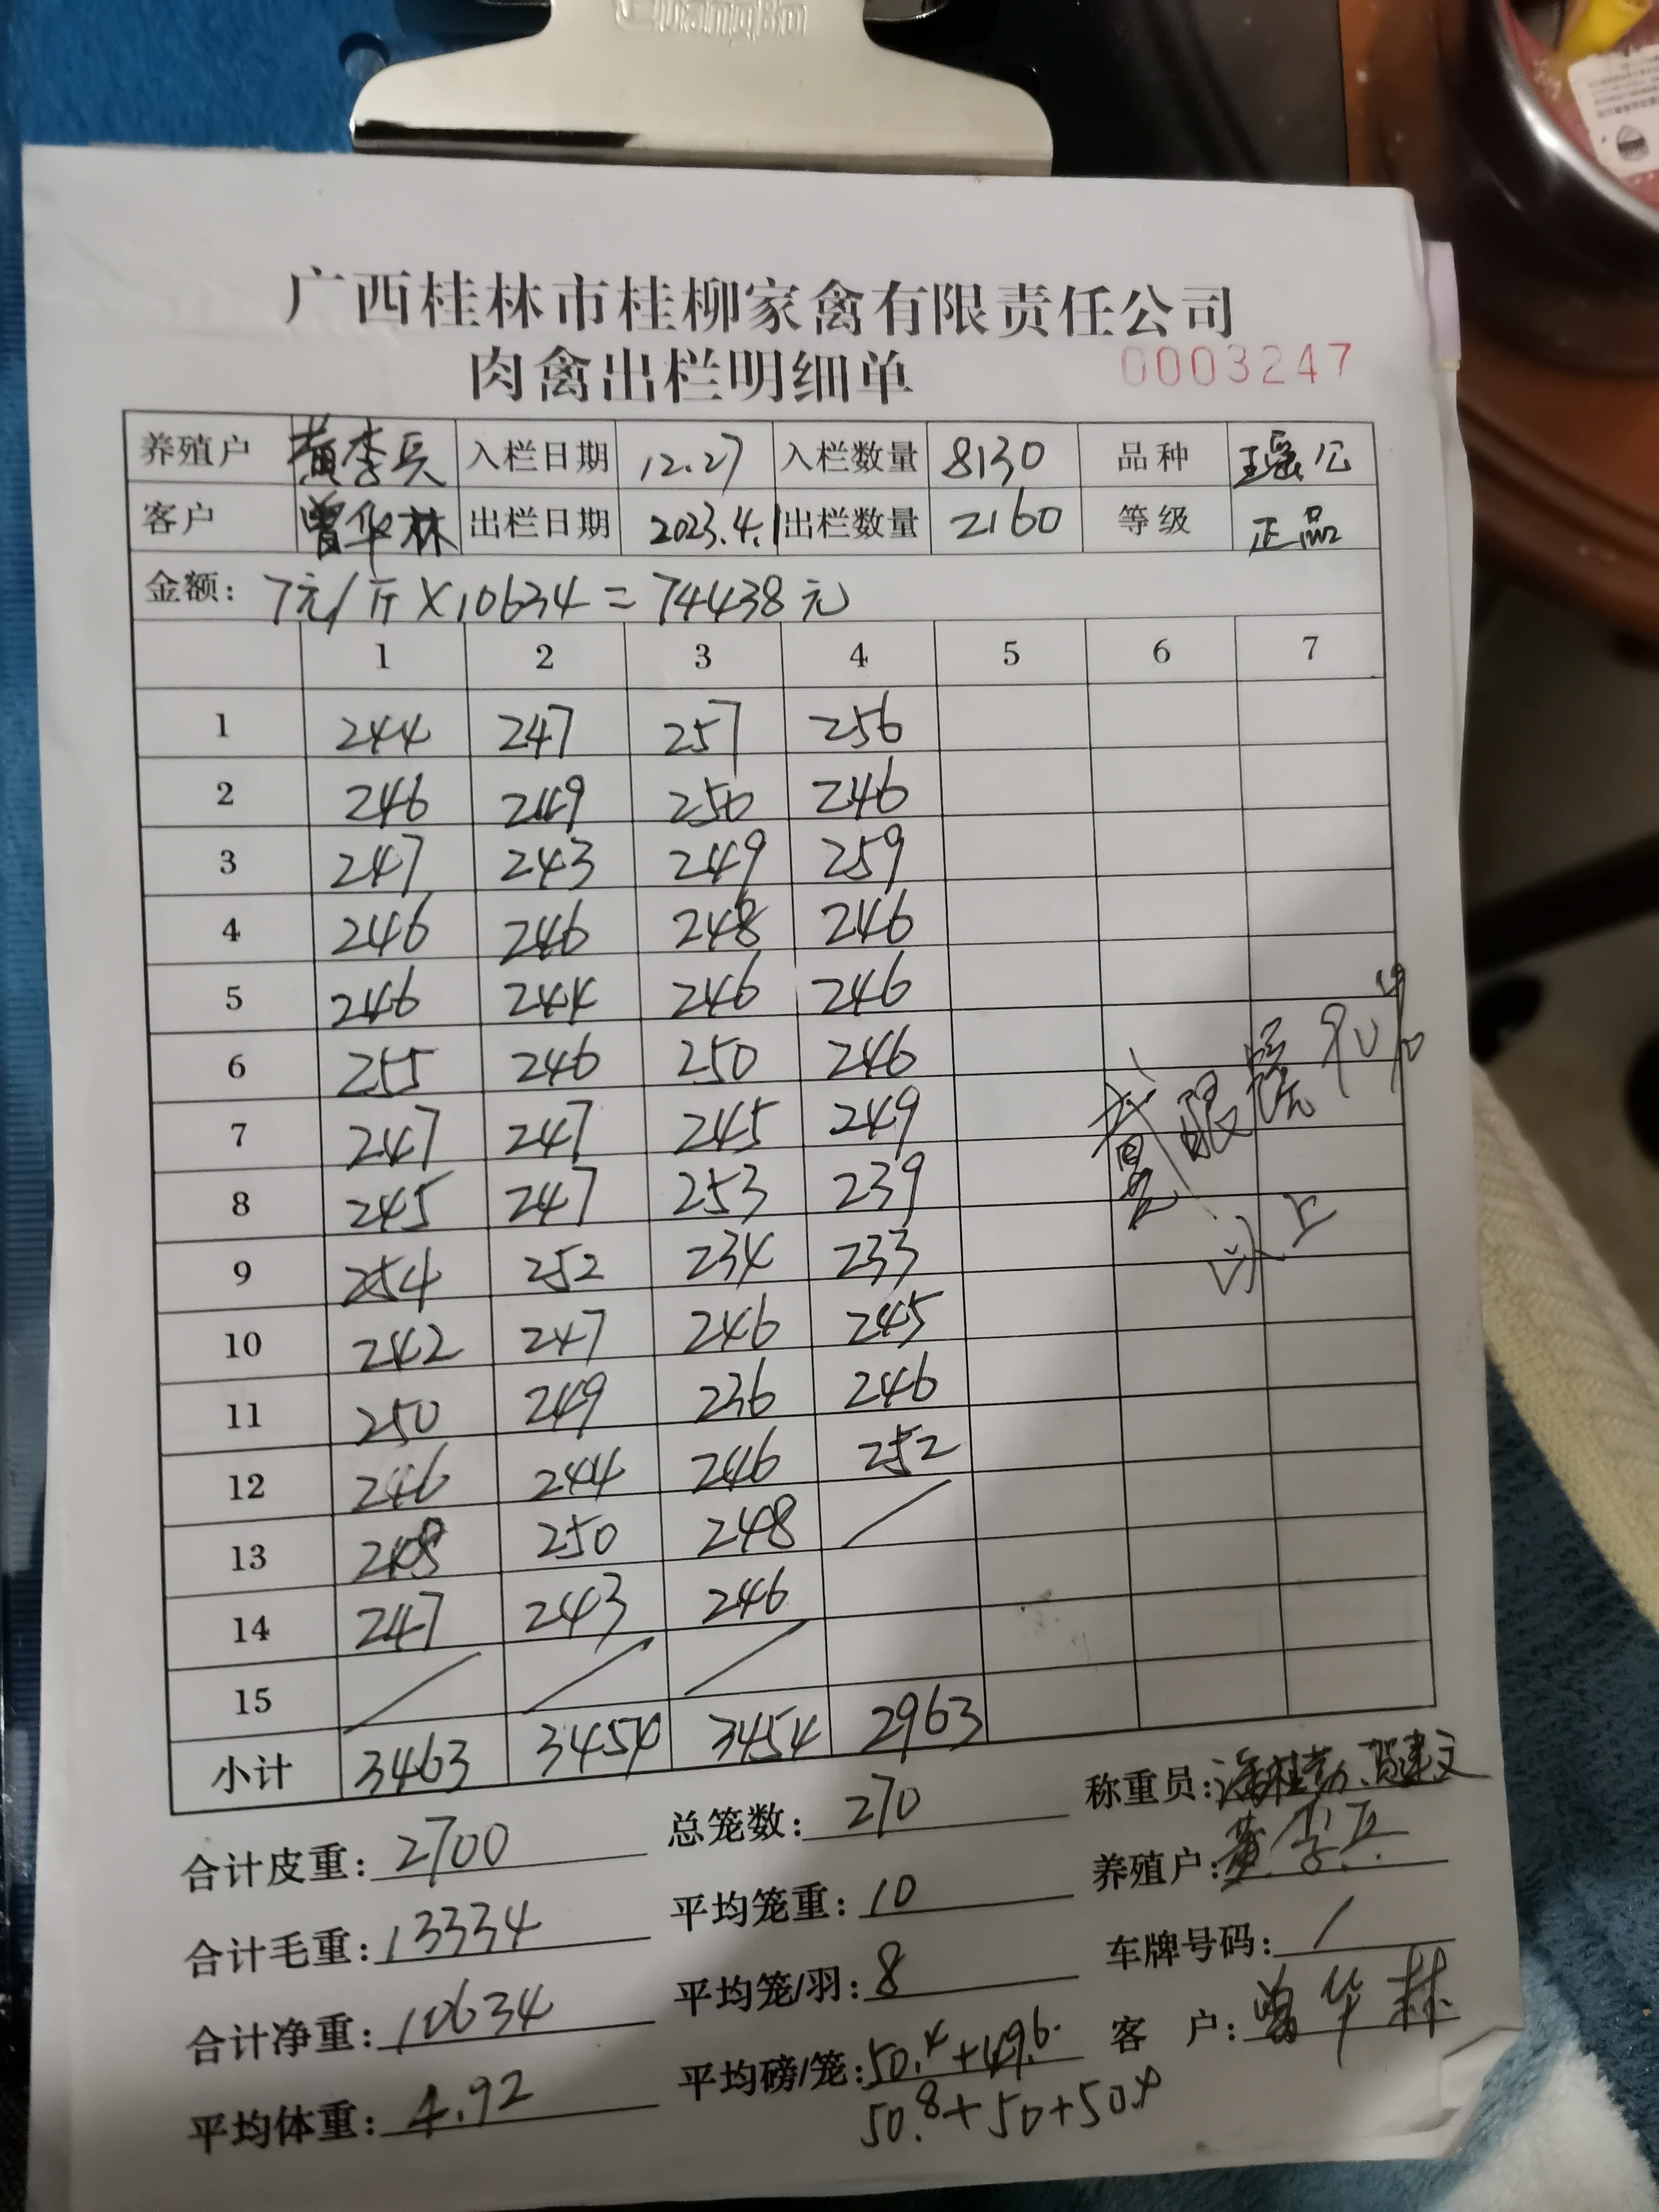 Guangbo
广西桂林市桂柳家禽有限责任公司
肉禽出栏明细单 0003247
养殖户 黄李兵 入栏日期 12.27 入栏数量 8130 品种 瑶公
客户 曾华林 出栏日期 2023.4.1 出栏数量 2160 等级 正品
金额: 7元/斤×10634=74438元
1 2 3 4 5 6 7
1 244 247 257 256
2 246 249 250 246
3 247 243 249 259
4 246 246 248 246
5 246 244 246 246
6 255 246 250 246
7 247 247 245 249
8 245 247 253 239
9 254 252 234 233
10 242 247 246 245
11 250 249 236 246
12 246 244 246 252
13 248 250 248 /
14 247 243 246
15 / / /
小计 3463 3454 3454 2963
眼 90%
以上
合计皮重: 2700 总笼数: 270 称重员:
合计毛重: 13334 平均笼重: 10 养殖户: 黄李兵
合计净重: 10634 平均笼/羽: 8 车牌号码: /
平均体重: 4.92 平均磅/笼: 50.4+49.6 客户: 曾华林
50.8+50+50.4